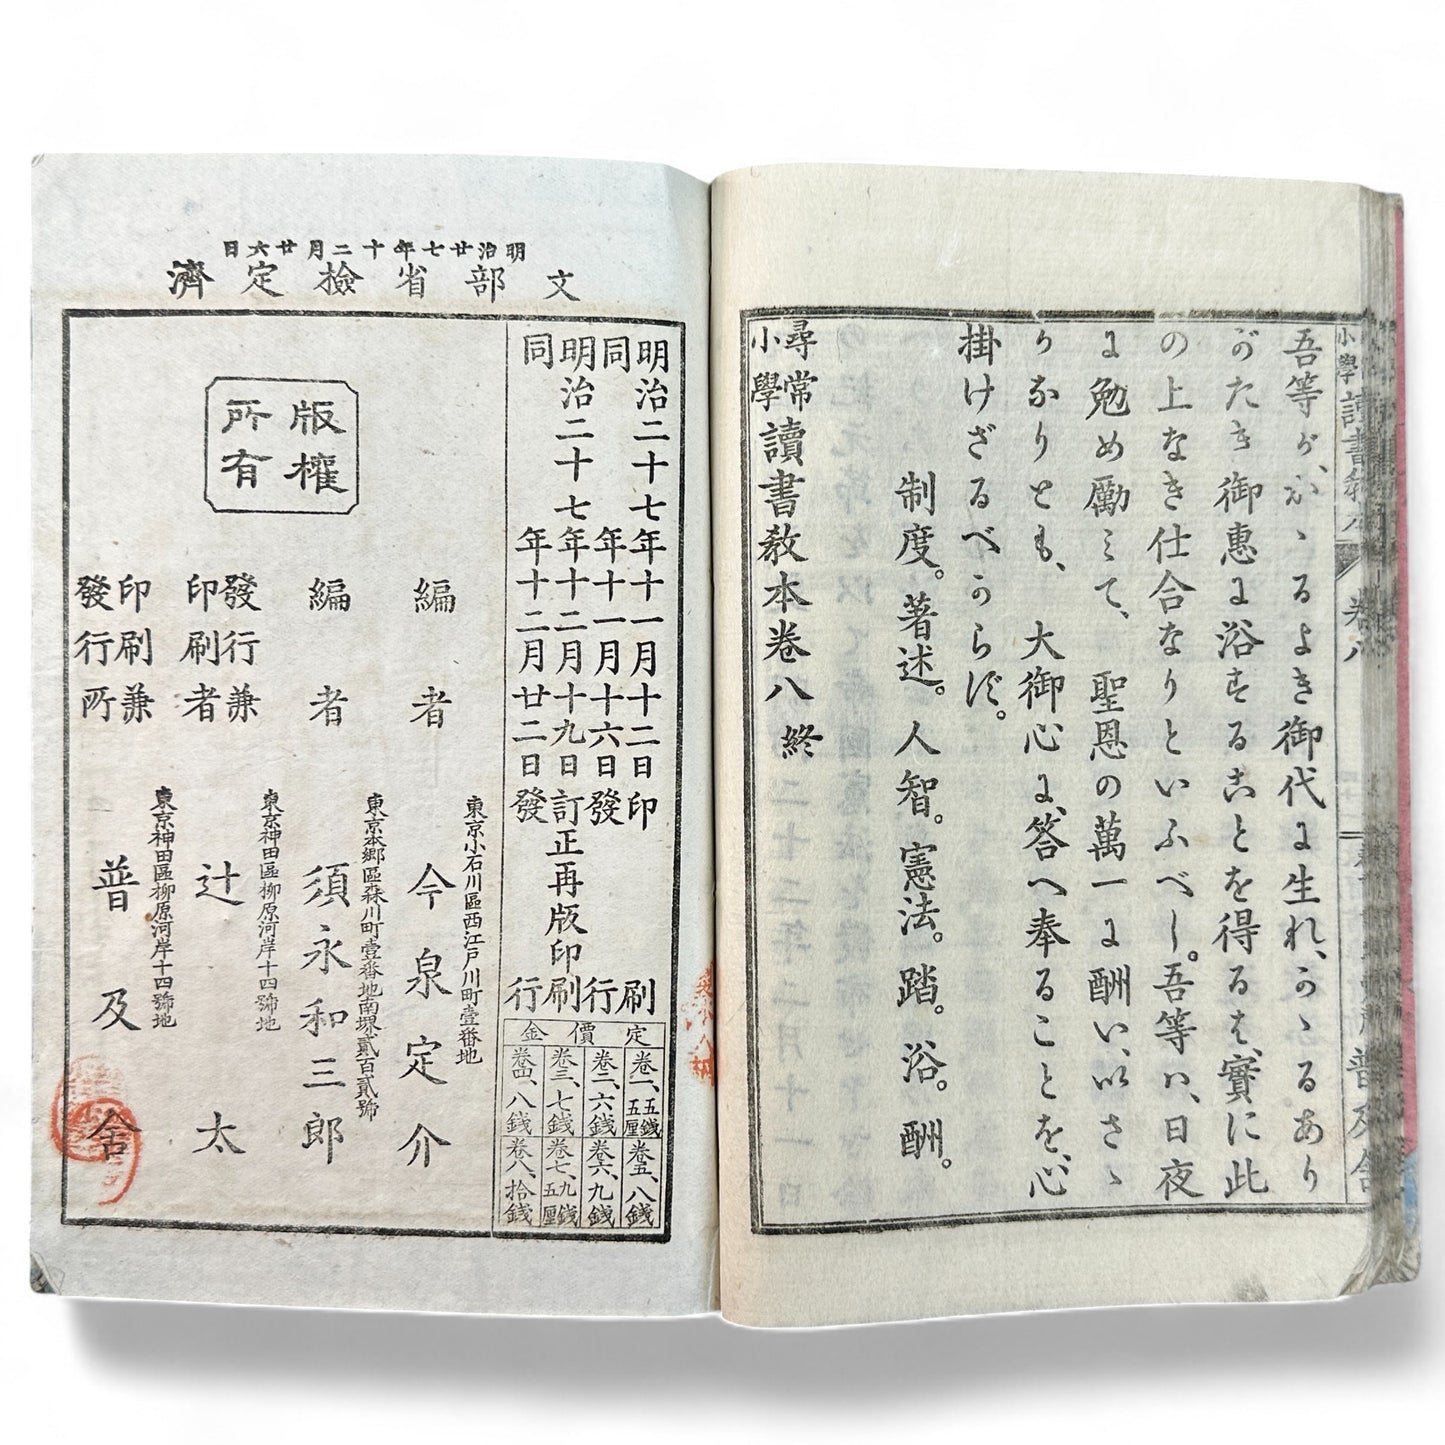 吾等が、かゝるよき御代に生れ、かゝるあり
がたき御恵に浴することを得るは、實に此
の上なき仕合なりといふべし。吾等は、日夜
に勉め勵みて、聖恩の萬一に酬い、いさゝ
かなりとも、大御心に、答へ奉ることを、心
掛けざるべからず。
制度。著述。人智。憲法。踏。浴。酬。
尋常小學讀書教本卷八終
明治廿七年十二月廿六日
文部省檢定濟
明治二十七年十一月十二日印刷
同年十一月十六日發行
明治二十七年十二月十九日訂正再版印刷
同年十二月廿二日發行
定價金
卷一、五錢五厘
卷二、六錢
卷三、七錢
卷四、八錢
卷五、八錢
卷六、九錢
卷七、九錢五厘
卷八、拾錢
版權所有
東京小石川區西江戸川町壹番地
編者 今泉定介
東京本郷區森川町壹番地南堺貳百貳號
編者 須永和三郎
東京神田區柳原河岸十四號地
發行兼印刷者 辻太
東京神田區柳原河岸十四號地
印刷兼發行所 普及舍